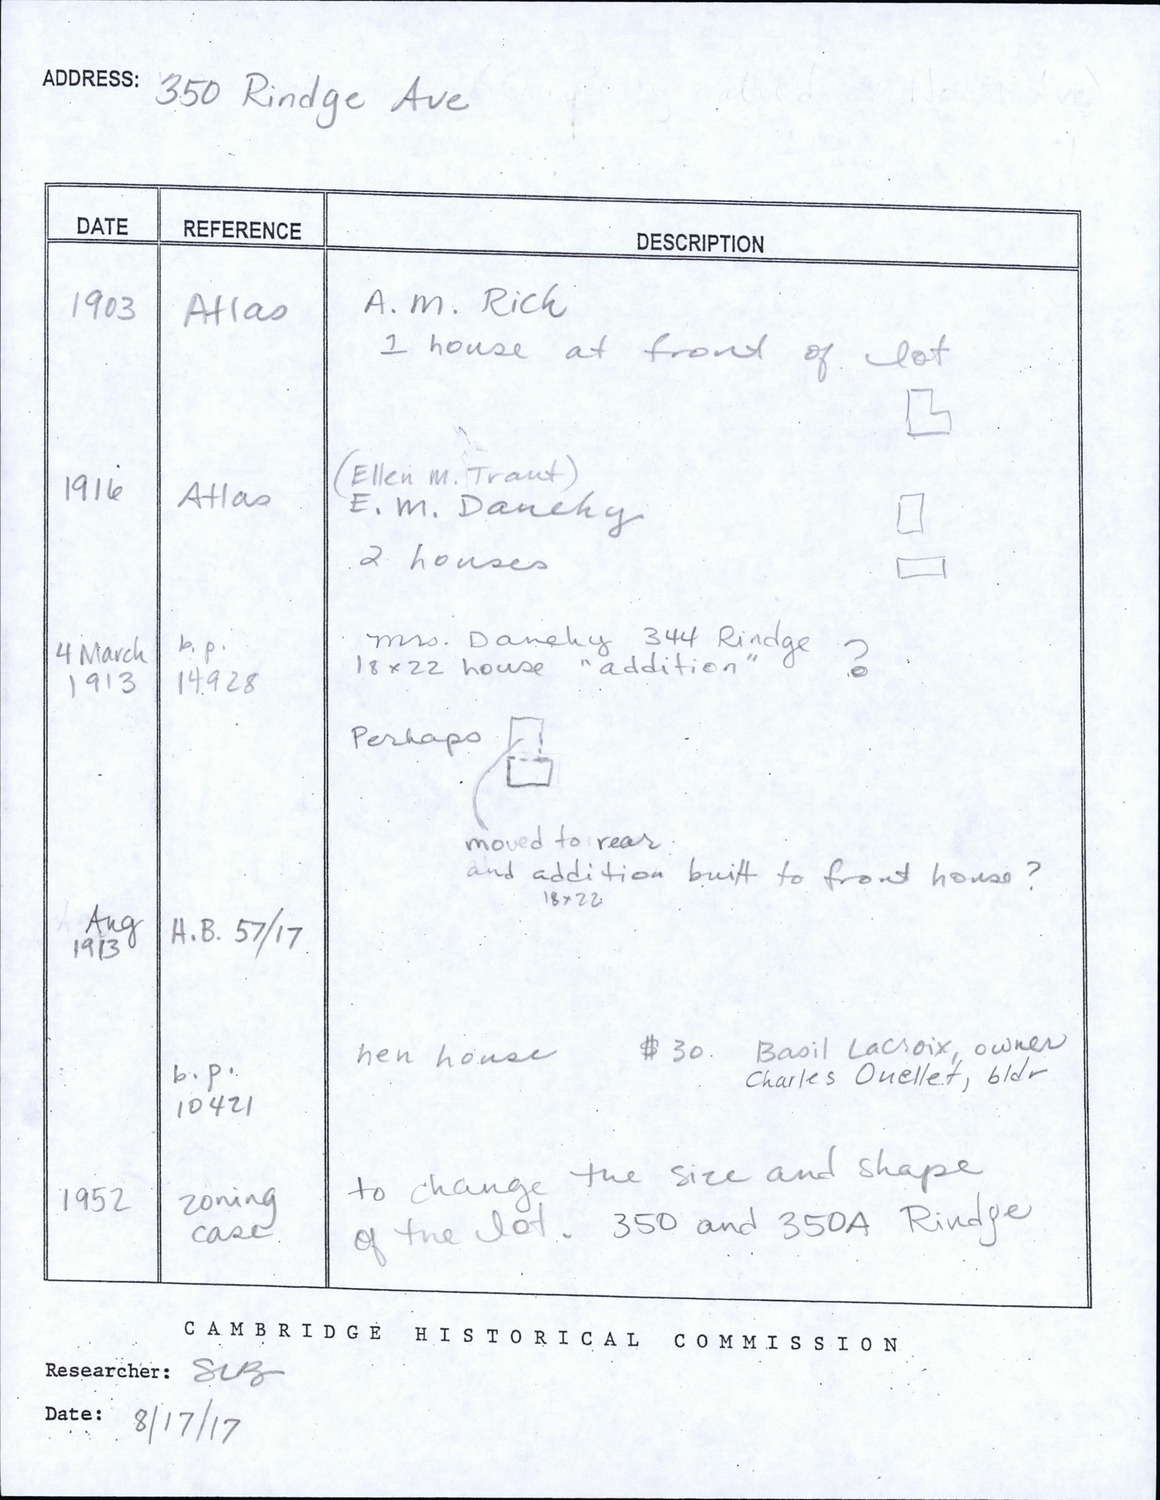 ADDRESS: 350 Rindge Ave
DATE REFERENCE DESCRIPTION
1903 Atlas A. M. Rich
1 house at front of lot
(Ellen M. Traut)
1916 Atlas E. M. Danehy
2 houses
4 March b.p. Mrs. Danehy 344 Rindge ?
1913 14928 18x22 house "addition"
Perhaps
moved to rear
and addition built to front house?
18x22
Aug H.B. 57/17
1913
hen house $30. Basil Lacroix, owner
b.p. Charles Ouellet, bldr
10421
1952 zoning to change the size and shape
case of the lot. 350 and 350A Rindge
CAMBRIDGE HISTORICAL COMMISSION
Researcher: SLB
Date: 8/17/17